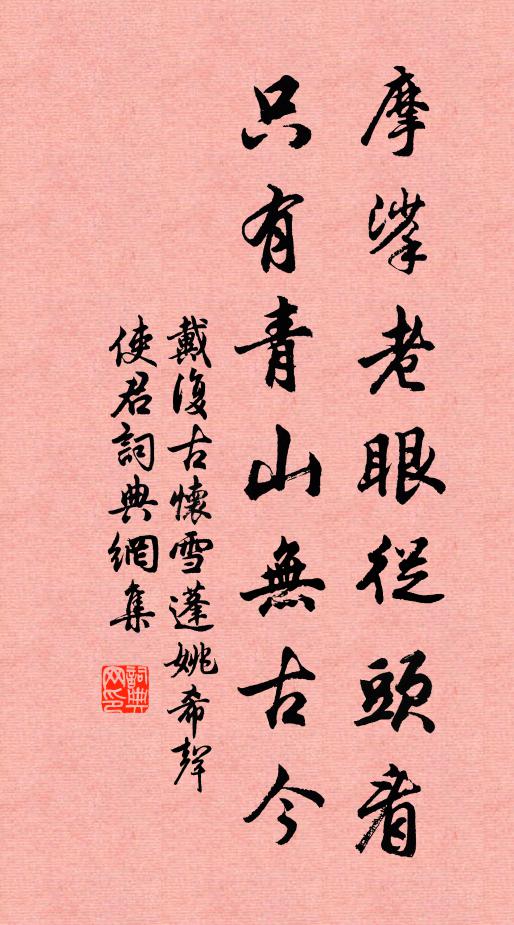 摩挲老眼從頭看
只有青山無古今
戴復古懷雪蓬姚希聲
使君詞典網集
詞典網印